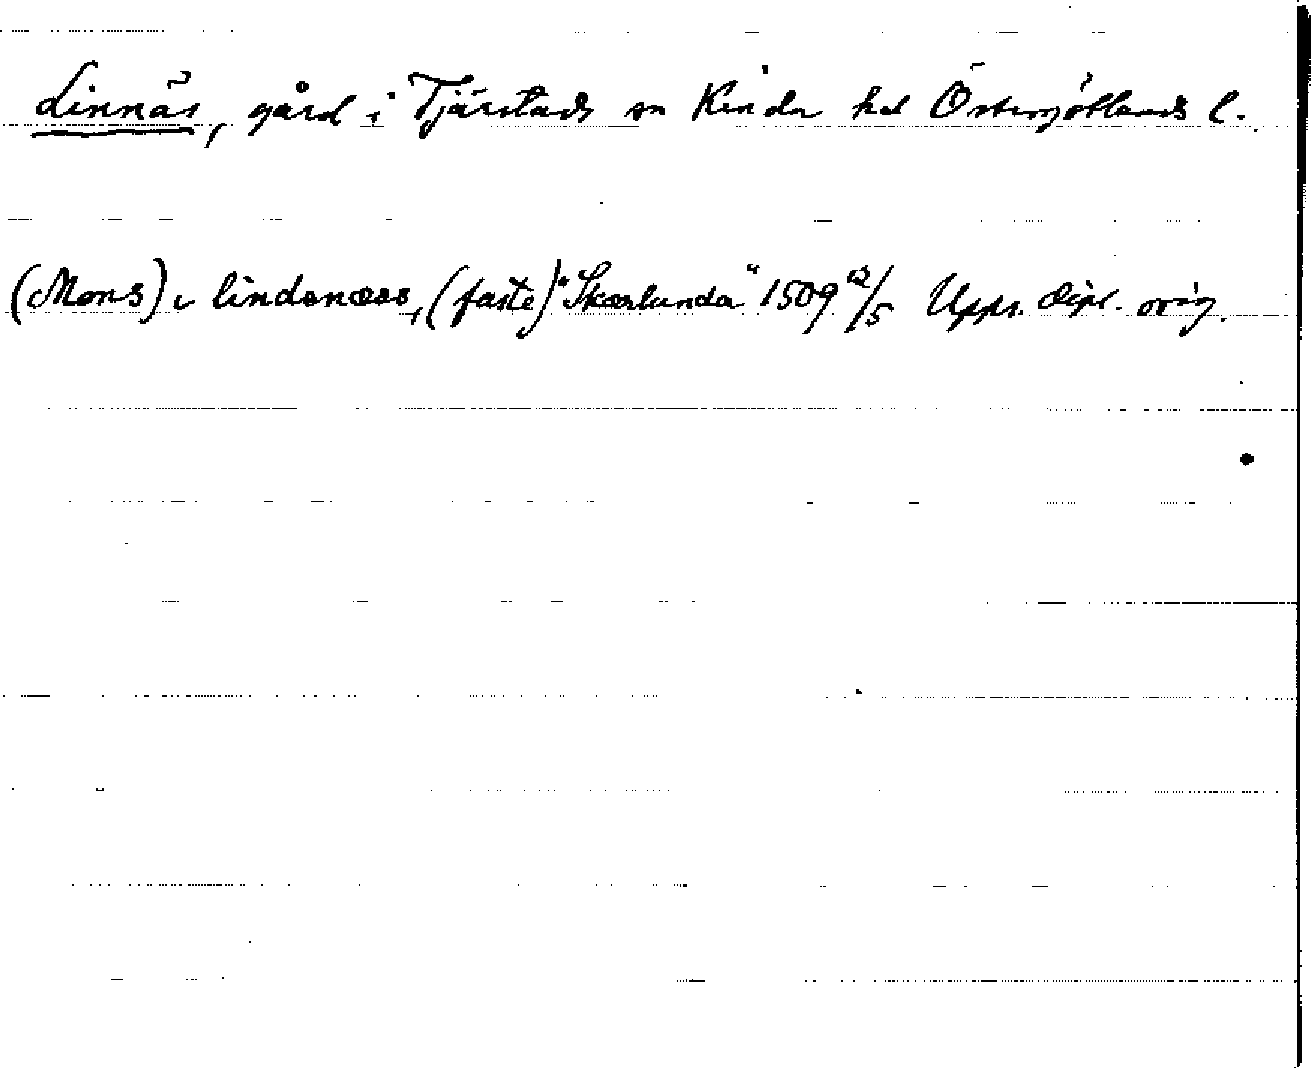 Linnäs, gård i Tjärstads sn Kinda hd Östergötlands l.
(Mons) i lindanæs, (faste) "Skærlunda" 1509 /5 Upps. dipl. orig.